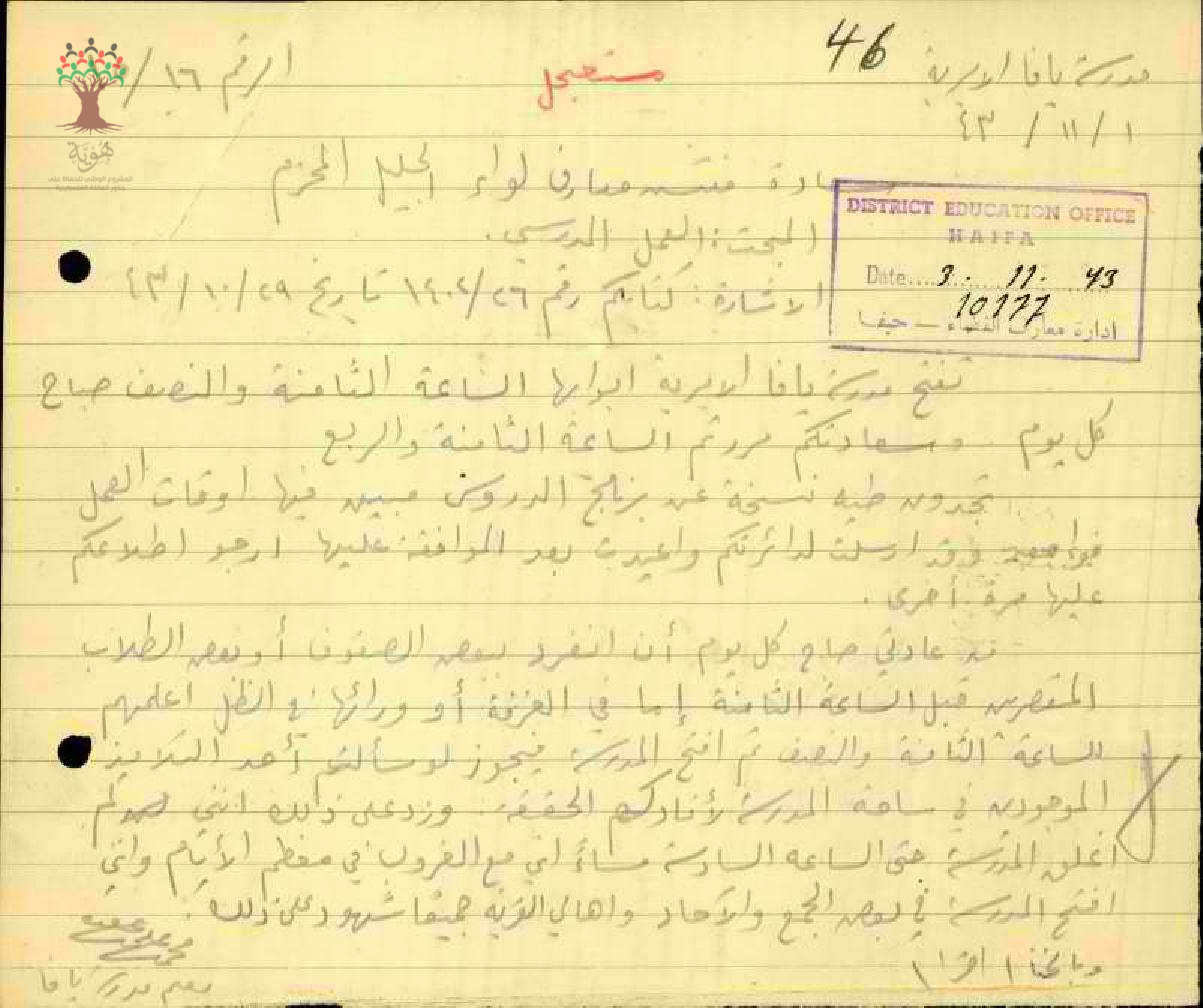 46
مدرسة يافا الاميرية
مستعجل
الرقم ١٦/
١ / ١١ / ٤٣
هُويّة
المشروع الوطني للحفاظ على
جذور العائلة الفلسطينية
سعادة مفتش معارف لواء الجليل المحترم
DISTRICT EDUCATION OFFICE
HAIFA
Date....3. 11. 43
10177
ادارة معارف القضاء — حيفا
المبحث: العمل المدرسي.
الاشارة: كتابكم رقم ١٤٠٢/٢٦ تاريخ ٢٩/١٠/٤٣
تفتح مدرسة يافا الاميرية ابوابها الساعة الثامنة والنصف صباح
كل يوم. وسعادتكم مررتم الساعة الثامنة والربع
تجدون طيه نسخة عن برنامج الدروس مبين فيها اوقات العمل
وقد ارسلت لدائرتكم واعيدت بعد الموافقة عليها ارجو اطلاعكم
عليها مرة أخرى.
من عادتي صباح كل يوم أن انفرد ببعض الصفوف أو بعض الطلاب
المقصرين قبل الساعة الثامنة إما في الغرفة أو ورائها في الظل اعلمهم
للساعة الثامنة والنصف ثم افتح المدرسة فيجوز لو سألتم أحد التلاميذ
الموجودين في ساحة المدرسة لأفادكم الحقيقة. وزد على ذلك انني
اغلق المدرسة حتى الساعة السادسة مساءً اي مع الغروب في معظم الأيام واني
افتح المدرسة في بعض الجمع والآحاد واهالي القرية جميعا شهود على ذلك.
معلم مدرسة يافا